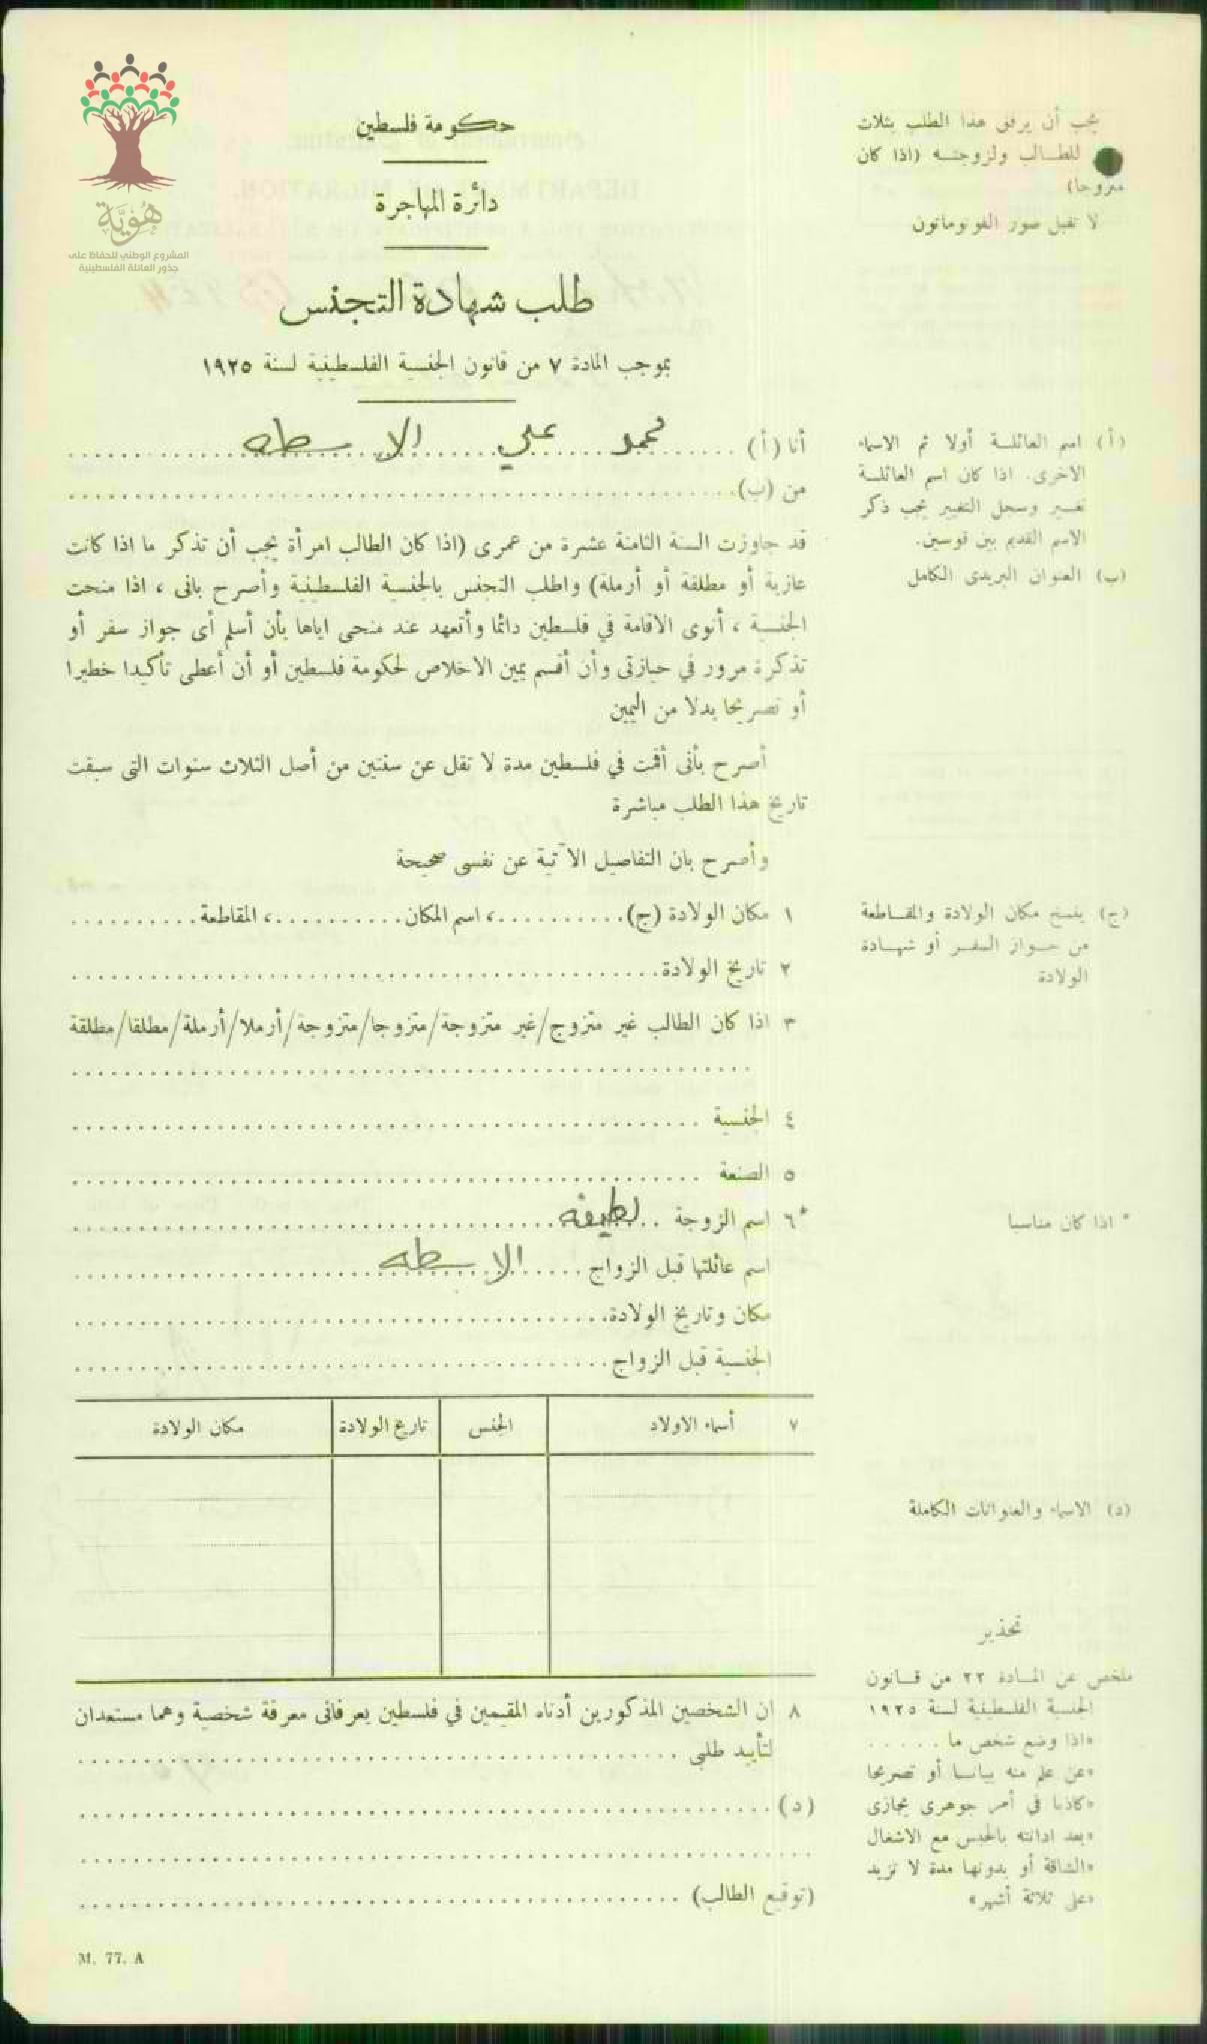 هُوِيَّة
المشروع الوطني للحفاظ على
جذور العائلة الفلسطينية
حكومة فلسطين
دائرة المهاجرة
طلب شهادة التجنس
بموجب المادة ٧ من قانون الجنسية الفلسطينية لسنة ١٩٢٥
يجب أن يرفق هذا الطلب بثلاث
للطالب ولزوجته (اذا كان
متزوجا)
لا تقبل صور الفوتوماتون
أنا (أ) محمد علي الاسطه
من (ب)
قد جاوزت السنة الثامنة عشرة من عمرى (اذا كان الطالب امرأة يجب أن تذكر ما اذا كانت
عازبة أو مطلقة أو أرملة) واطلب التجنس بالجنسية الفلسطينية وأصرح بانى ، اذا منحت
الجنسية ، أنوى الاقامة في فلسطين دائما وأتعهد عند منحى اياها بأن أسلم أى جواز سفر أو
تذكرة مرور في حيازتى وأن أقسم يمين الاخلاص لحكومة فلسطين أو أن أعطى تأكيدا خطيرا
أو تصريحا بدلا من اليمين
أصرح بأنى أقمت في فلسطين مدة لا تقل عن سنتين من أصل الثلاث سنوات التى سبقت
تاريخ هذا الطلب مباشرة
وأصرح بان التفاصيل الآتية عن نفسى صحيحة
١ مكان الولادة (ج) ..........، اسم المكان..........، المقاطعة..........
٢ تاريخ الولادة
٣ اذا كان الطالب غير متزوج/غير متزوجة/متزوجا/متزوجة/أرملا/أرملة/مطلقا/مطلقة
٤ الجنسية
٥ الصنعة
*٦ اسم الزوجة لطيفه
اسم عائلتها قبل الزواج الاسطه
مكان وتاريخ الولادة
الجنسية قبل الزواج
٧ أسماء الاولاد الجنس تاريخ الولادة مكان الولادة
٨ ان الشخصين المذكورين أدناه المقيمين في فلسطين يعرفانى معرفة شخصية وهما مستعدان
لتأييد طلبى
(د)
(توقيع الطالب)
(أ) اسم العائلة أولا ثم الاسماء
الاخرى. اذا كان اسم العائلة
تغير وسجل التغيير يجب ذكر
الاسم القديم بين قوسين.
(ب) العنوان البريدى الكامل
(ج) ينسخ مكان الولادة والمقاطعة
من جواز السفر أو شهادة
الولادة
* اذا كان مناسبا
(د) الاسماء والعنوانات الكاملة
تحذير
ملخص عن المادة ٢٣ من قانون
الجنسية الفلسطينية لسنة ١٩٢٥
«اذا وضع شخص ما . . . . .
«عن علم منه بيانا أو تصريحا
«كاذبا في أمر جوهرى يجازى
«بعد ادانته بالحبس مع الاشغال
«الشاقة أو بدونها مدة لا تزيد
«على ثلاثة أشهر»
M. 77. A